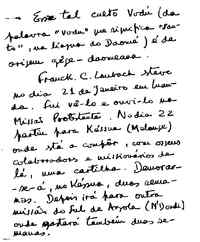 → Esse tal culto Vodú (da
palavra "vodú" que significa "San-
to", na língua do Daomé) é de
origem gêge-daomeana.
Franck. C. Laubach esteve
no dia 21 de Janeiro em Luan-
da. Fui vê-lo e ouvi-lo na
Missão Protestante. No dia 22
partiu para Késsua (Malange)
onde está a compôr, com seus
colaboradores e missionários da-
lá, uma cartilha. Demorar-
-se-á, no Késsua, duas sema-
nas. Depois irá para outra
missão do Sul de Angola (N'Donde)
onde gastará também duas se-
manas.